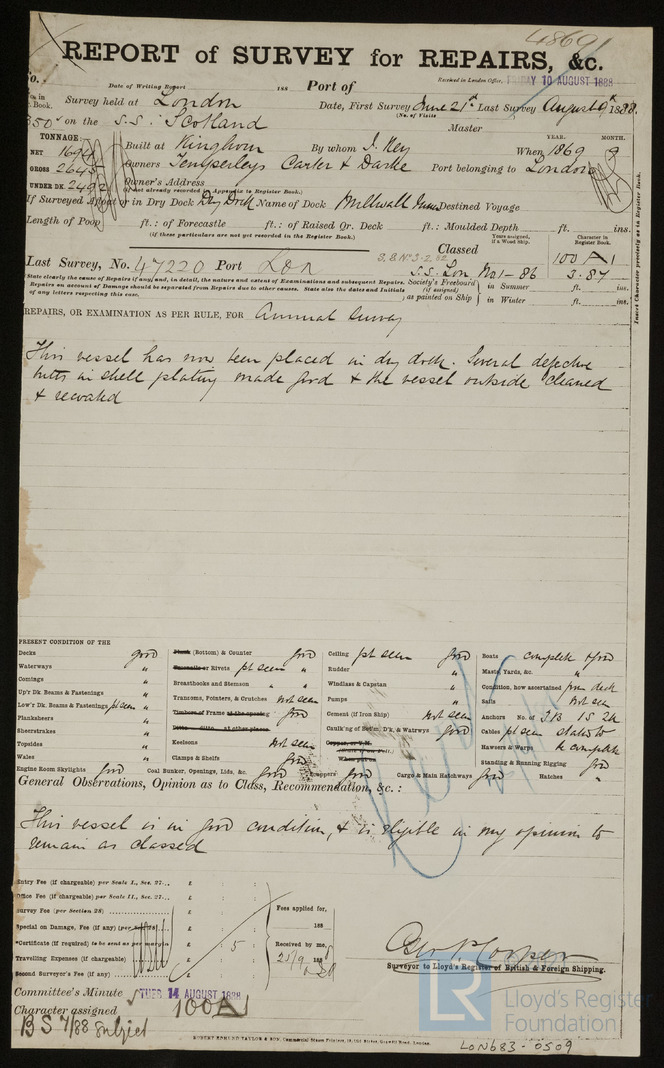 48691
REPORT of SURVEY for REPAIRS, &c.
No.
Date of Writing Report 188 Port of Received in London Office, FRIDAY 10 AUGUST 1888
No. in Reg. Book. Survey held at London Date, First Survey June 21st Last Survey August 9th 1888.
(No. of Visits
350 on the S.S. Scotland Master
TONNAGE: YEAR. MONTH.
NET 1694 Built at Kinghorn By whom J. Key When 1869 9
GROSS 2645 Owners Temperleys Carter & Darke Port belonging to London
UNDER DK. 2492 Owner's Address
(if not already recorded in Appendix to Register Book.)
If Surveyed Afloat or in Dry Dock Dry Dock Name of Dock Millwall Destined Voyage
(if these particulars are not yet recorded in the Register Book.)
Length of Poop ft.: of Forecastle ft.: of Raised Qr. Deck ft.: Moulded Depth ft. ins.
Classed Years assigned, if a Wood Ship. Character in Register Book.
Last Survey, No. 47220 Port Lon S.S. Lon No1-86 100 A 1
3.87
State clearly the cause of Repairs if any; and, in detail, the nature and extent of Examinations and subsequent Repairs.
Repairs on account of Damage should be separated from Repairs due to other causes. State also the dates and Initials
of any letters respecting this case.
Society's Freeboard (if assigned) as painted on Ship in Summer ft. ins.
in Winter ft. ins.
Insert Character precisely as in Register Book.
REPAIRS, OR EXAMINATION AS PER RULE, FOR Annual Survey
This vessel has now been placed in dry dock. Several defective
butts in shell plating made good & the vessel outside cleaned
& recoated
PRESENT CONDITION OF THE
Decks good
Waterways "
Comings "
Up'r Dk. Beams & Fastenings "
Low'r Dk. Beams & Fastenings pt seen "
Planksheers "
Sheerstrakes "
Topsides "
Wales "
Engine Room Skylights good
Plank (Bottom) & Counter good
Treenails or Rivets pt seen "
Breasthooks and Stemson " "
Transoms, Pointers, & Crutches not seen
Timbers of Frame at the opening good
Ditto ditto at other places
Keelsons not seen
Clamps & Shelfs good
Coal Bunker, Openings, Lids, &c. good
Ceiling pt seen good
Rudder "
Windlass & Capstan "
Pumps "
Cement (if Iron Ship) not seen
Caulk'ng of Bottm, D'k, & Watrwys good
Copper, or Y.M.
When put on
Scuppers good Cargo & Main Hatchways good
Boats complete & good
Masts, Yards, &c. "
Condition, how ascertained from deck
Sails not seen
Anchors No. of 3B 1S 2K
Cables pt seen stated to
Hawsers & Warps be complete
Standing & Running Rigging good
Hatches "
General Observations, Opinion as to Class, Recommendation, &c.:
This vessel is in good condition, & is eligible in my opinion to
remain as classed
Entry Fee (if chargeable) per Scale I., Sec. 27... £ : :
Office Fee (if chargeable) per Scale II., Sec. 27... £ : :
Survey Fee (per Section 28) £ : :
Special on Damage, Fee (if any) (per Section 28) £ : :
*Certificate (if required) to be sent as per margin £ : 5 :
Travelling Expenses (if chargeable) £ : :
Second Surveyor's Fee (if any) £ : :
Fees applied for,
188
Received by me,
25/9 188
Geo. P. Cooper
Surveyor to Lloyd's Register of British & Foreign Shipping.
Committee's Minute TUES 14 AUGUST 1888
Character assigned 100A1
BS 7/88 subject
ROBERT EDMUND TAYLOR & SON, Commercial Steam Printers, 19, Old Street, Goswell Road, London.
LR Lloyd's Register
Foundation
LON683-0509